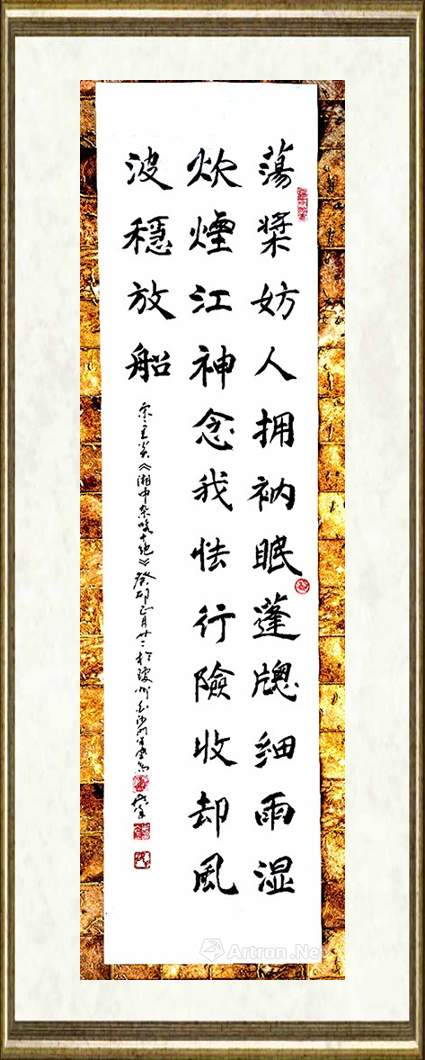 蕩槳妨人拥衲眠蓬牕细雨湿
炊煙江神念我怯行險收却風
波穩放船
宋王炎《湘中杂咏十绝》癸卯正月廿二於
Artron.Net